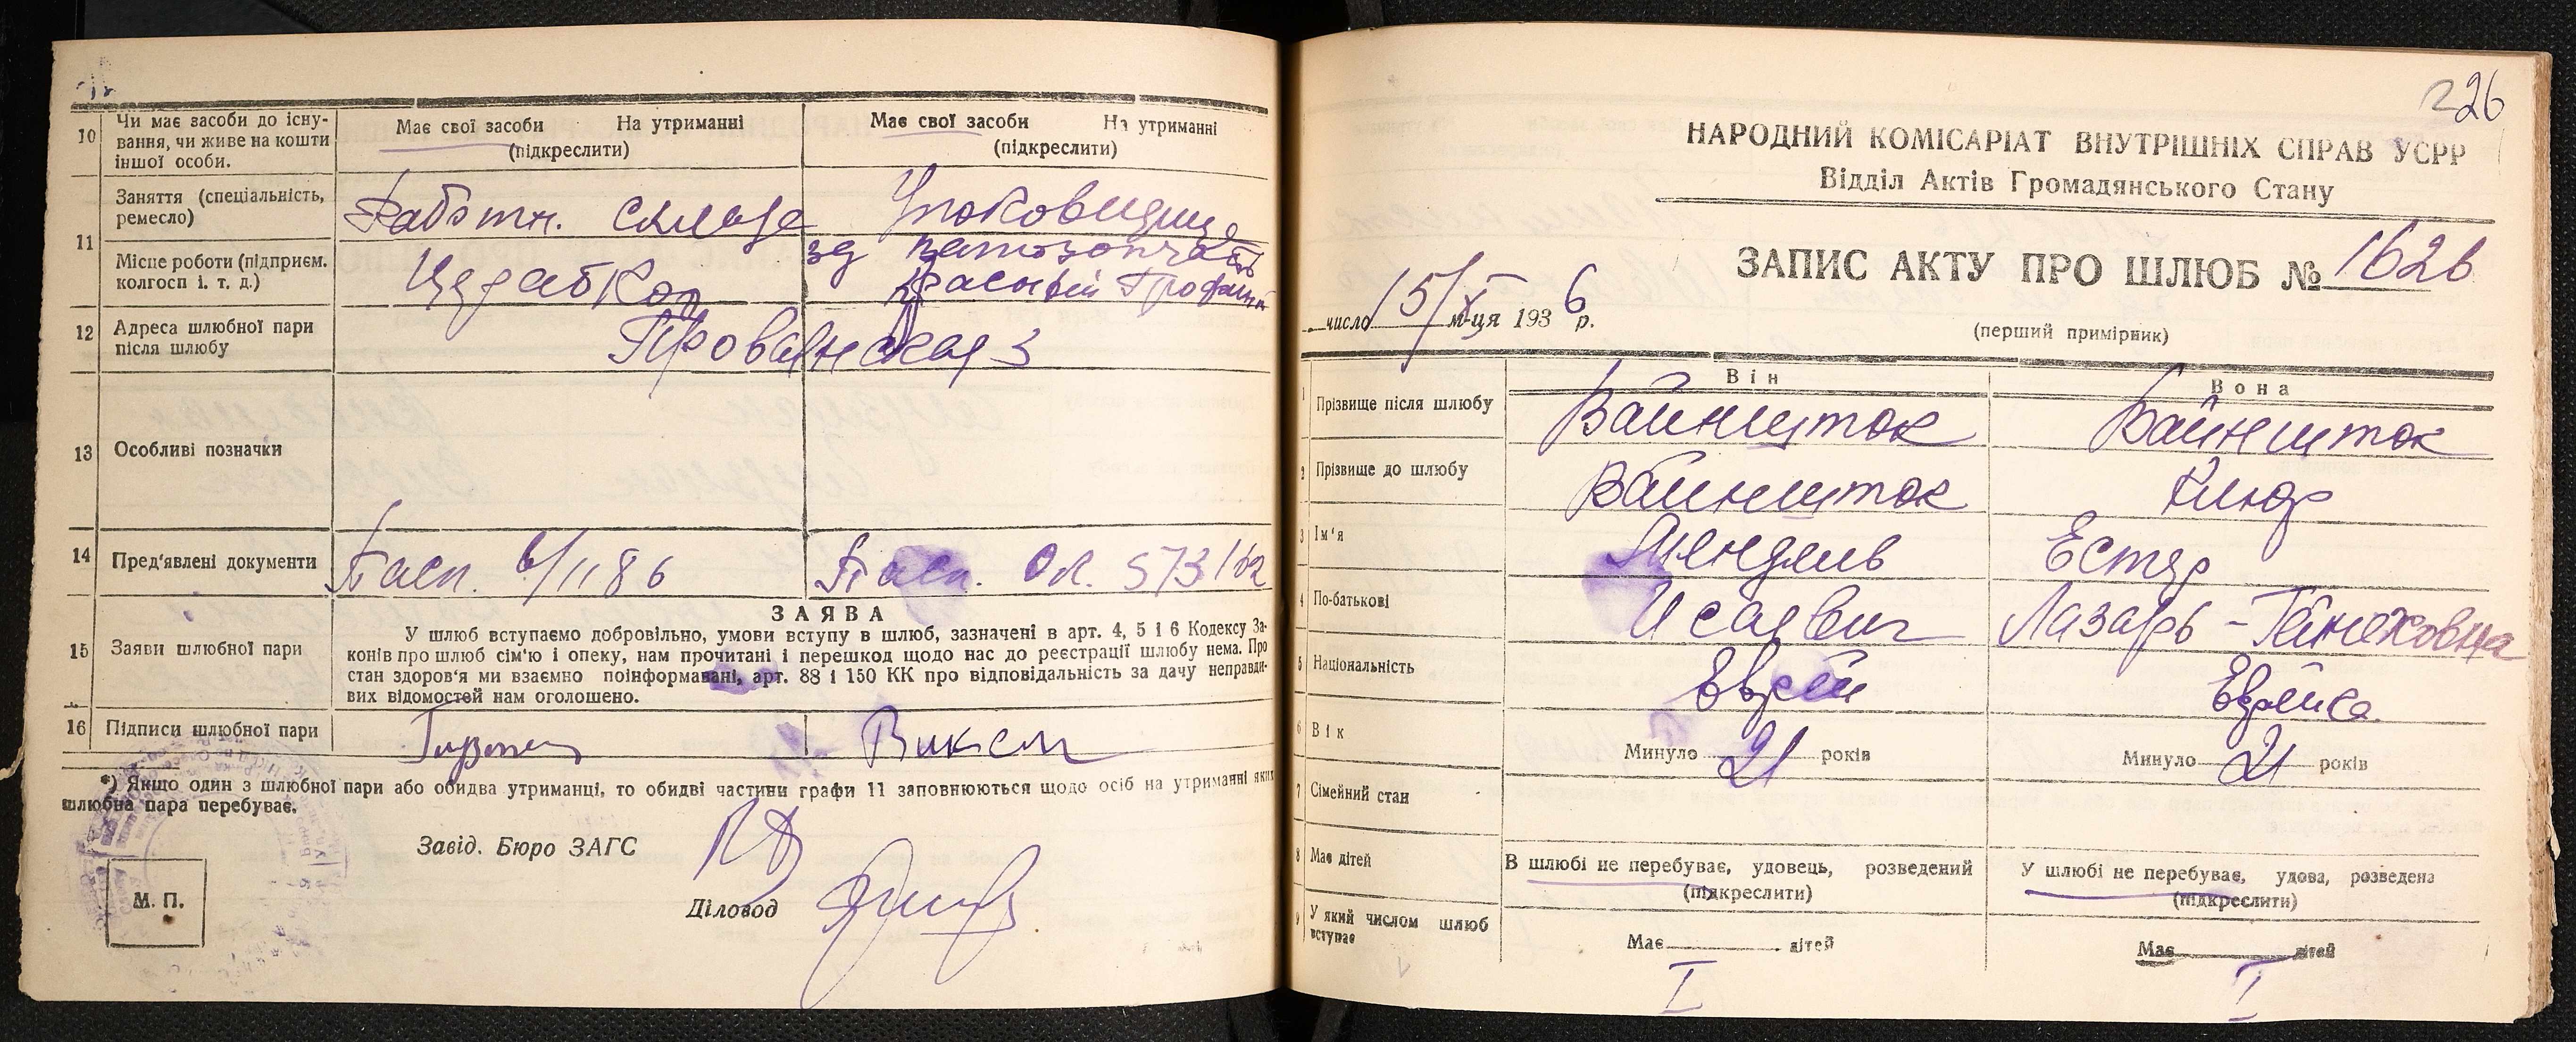 10 Чи має засоби до існу-
вання, чи живе на кошти
іншої особи.
Має свої засоби На утриманні
(підкреслити)
Має свої засоби На утриманні
(підкреслити)
11 Заняття (спеціальність,
ремесло)
Работн. склада
Упаковщица
Місце роботи (підприєм.
колгосп і. т. д.)
Красный Профинт
12 Адреса шлюбної пари
після шлюбу
Прованская 3
13 Особливі позначки
14 Пред'явлені документи
Пасп. 6/1186
Пасп. Ол. 573162
15 Заяви шлюбної пари
ЗАЯВА
У шлюб вступаємо добровільно, умови вступу в шлюб, зазначені в арт. 4, 5 і 6 Кодексу За-
конів про шлюб сім'ю і опеку, нам прочитані і перешкод щодо нас до реєстрації шлюбу нема. Про
стан здоров'я ми взаємно поінформавані, арт. 88 і 150 КК про відповідальність за дачу неправди-
вих відомостей нам оголошено.
16 Підписи шлюбної пари
*) Якщо один з шлюбної пари або обидва утриманці, то обидві частини графи 11 заповнюються щодо осіб на утриманні яких
шлюбна пара перебуває.
Завід. Бюро ЗАГС
Діловод
М. П.
226
НАРОДНИЙ КОМІСАРІАТ ВНУТРІШНІХ СПРАВ УСРР
Відділ Актів Громадянського Стану
ЗАПИС АКТУ ПРО ШЛЮБ № 1626
число 15/X м-ця 1936 р.
(перший примірник)
Він
Вона
1 Прізвище після шлюбу
Вайншток
Вайншток
2 Прізвище до шлюбу
Вайншток
3 Ім'я
Мендель
Естер
4 По-батькові
Исаевич
Лазарь-Гейноховна
5 Національність
Еврей
Еврейка
6 Вік
Минуло 21 років
Минуло 21 років
7 Сімейний стан
8 Має дітей
В шлюбі не перебуває, удовець, розведений
(підкреслити)
У шлюбі не перебуває, удова, розведена
(підкреслити)
9 У який числом шлюб
вступає
Має дітей
Має дітей
I
I